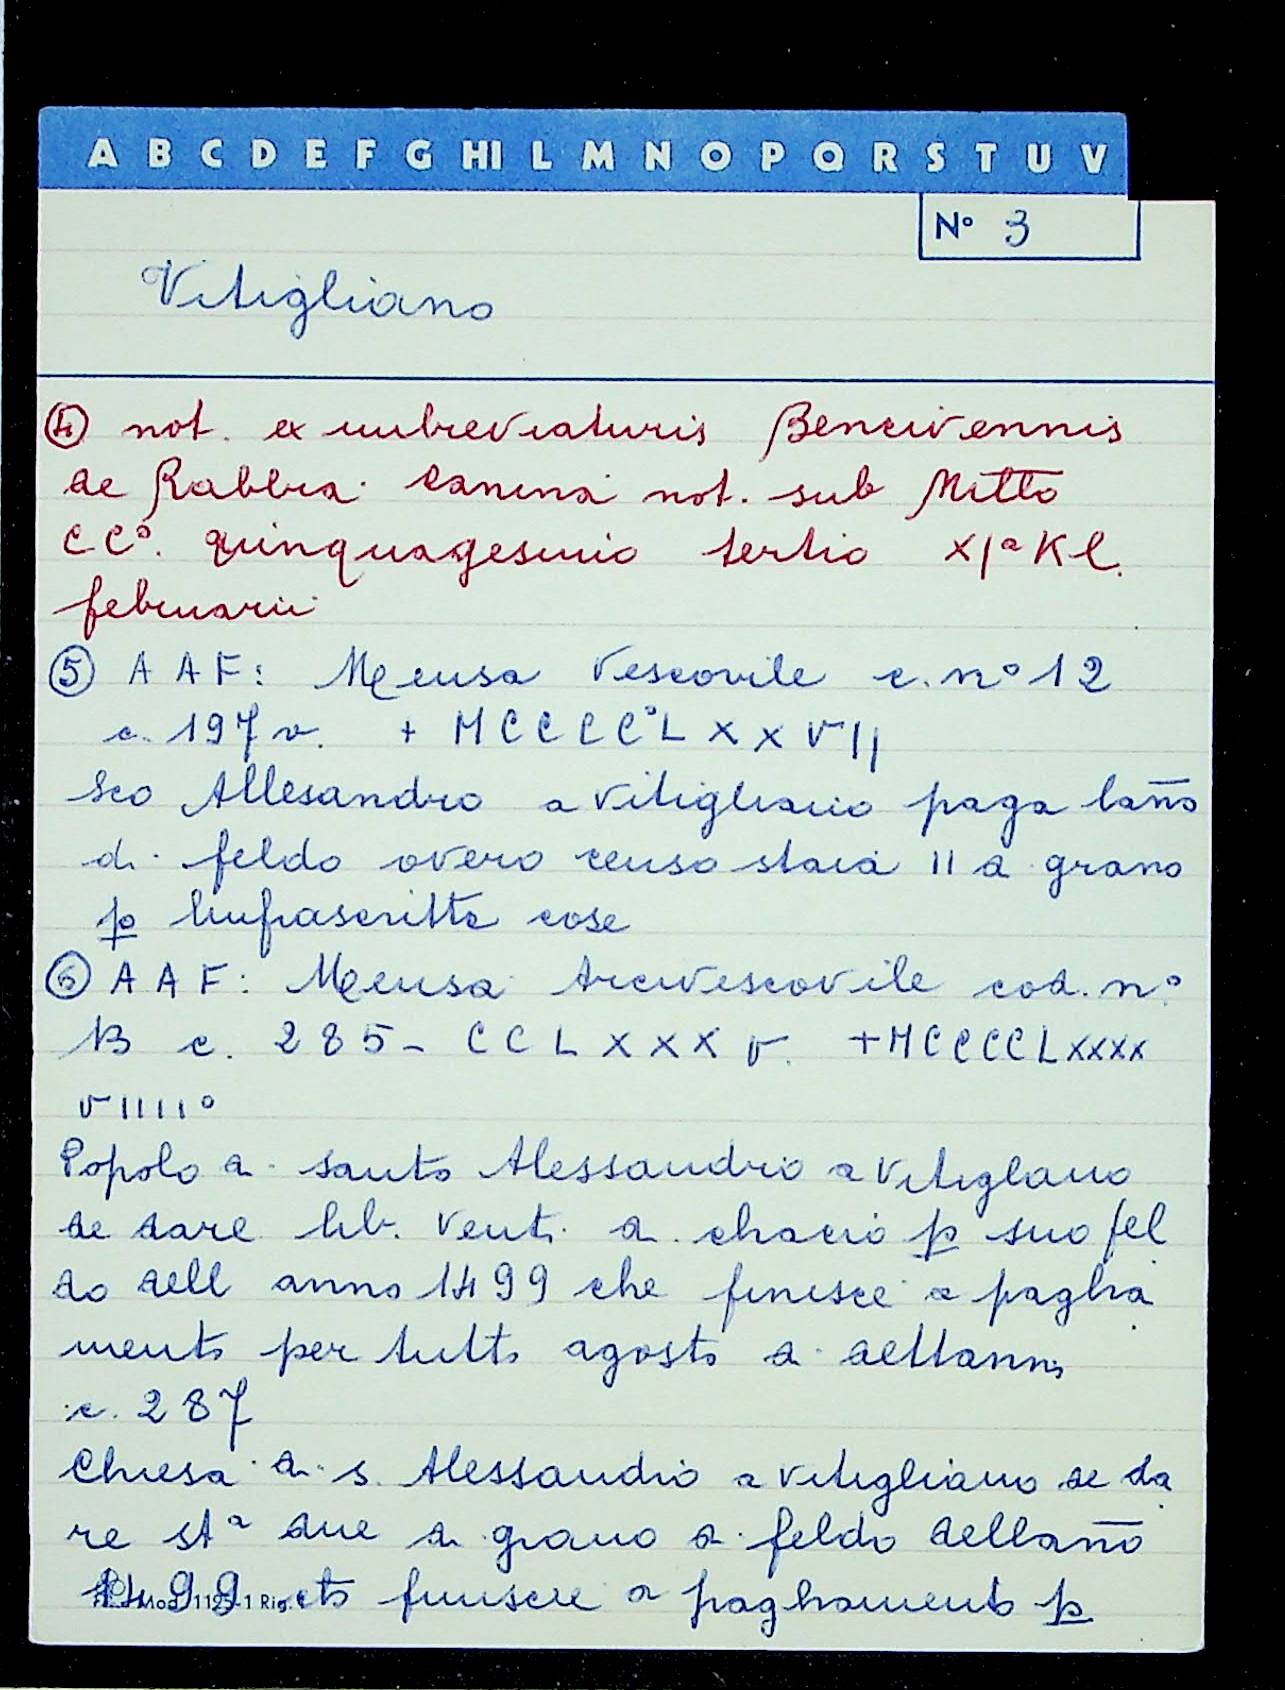 A B C D E F G HI L M N O P Q R S T U V
N° 3
Vitigliano
④ not. ex imbreviaturis Bencivennis
de Rabbia canina not. sub Millo
CC°. quinquagesimo tertio XIª Kl.
februarii
⑤ A A F: Mensa Vescovile c. n° 12
c. 197 v. + M C C C C° L X X V I I
Sco Allesandro a Vitigliano paga lano
di feldo overo censo staia II di grano
p linfrascritte cose
⑥ A A F: Mensa Arcivescovile cod. n°
13 c. 285 - C C L X X X V. + M C C C C L X X X X
V I I I I °
Popolo di santo Alessandro a Vitiglano
de dare lib. venti di chacio p suo fel
do dell anno 1499 che finisce a pagha
mento per tutto agosto di dettanno
c. 287
Chiesa di S. Alessandro a Vitigliano de da
re stª due di grano di feldo dellano
1499 finiscie a paghamento p